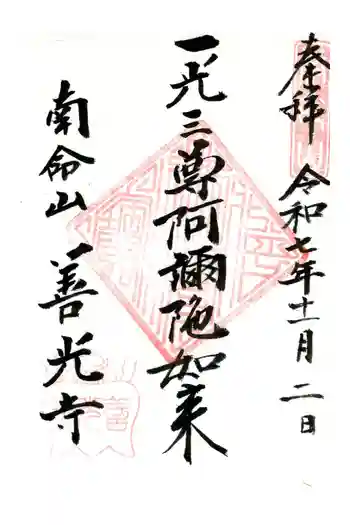 奉拝 令和七年十一月二日
一光三尊阿彌陀如来
南命山善光寺